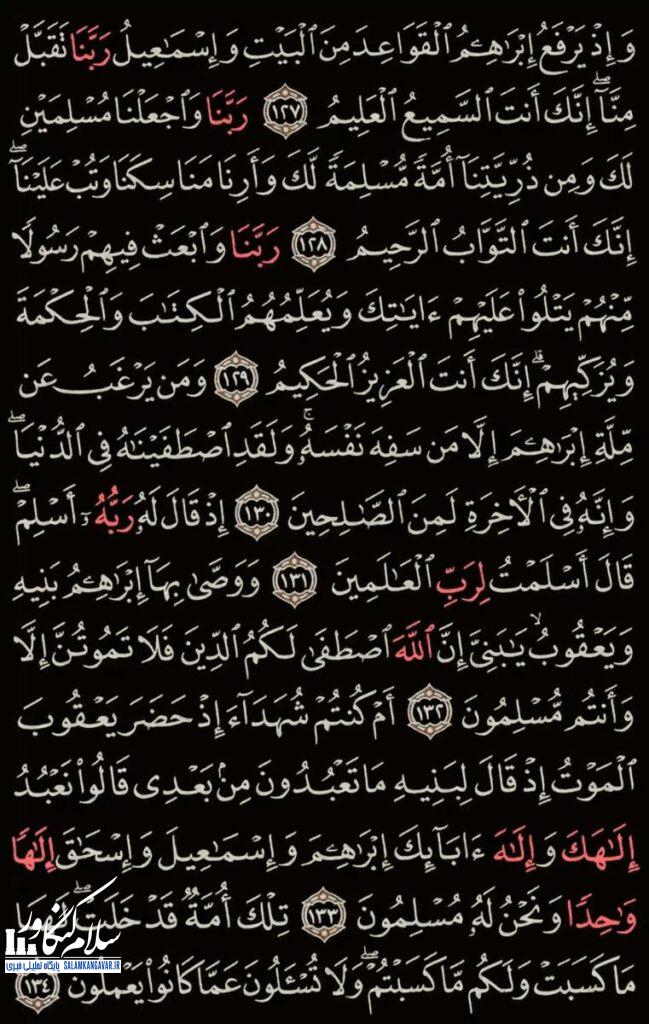 وَإِذْ يَرْفَعُ إِبْرَٰهِـۧمُ ٱلْقَوَاعِدَ مِنَ ٱلْبَيْتِ وَإِسْمَـٰعِيلُ رَبَّنَا تَقَبَّلْ
مِنَّآ ۖ إِنَّكَ أَنتَ ٱلسَّمِيعُ ٱلْعَلِيمُ ١٢٧ رَبَّنَا وَٱجْعَلْنَا مُسْلِمَيْنِ
لَكَ وَمِن ذُرِّيَّتِنَآ أُمَّةً مُّسْلِمَةً لَّكَ وَأَرِنَا مَنَاسِكَنَا وَتُبْ عَلَيْنَآ ۖ
إِنَّكَ أَنتَ ٱلتَّوَّابُ ٱلرَّحِيمُ ١٢٨ رَبَّنَا وَٱبْعَثْ فِيهِمْ رَسُولًا
مِّنْهُمْ يَتْلُوا۟ عَلَيْهِمْ ءَايَـٰتِكَ وَيُعَلِّمُهُمُ ٱلْكِتَـٰبَ وَٱلْحِكْمَةَ
وَيُزَكِّيهِمْ ۚ إِنَّكَ أَنتَ ٱلْعَزِيزُ ٱلْحَكِيمُ ١٢٩ وَمَن يَرْغَبُ عَن
مِّلَّةِ إِبْرَٰهِـۧمَ إِلَّا مَن سَفِهَ نَفْسَهُۥ ۚ وَلَقَدِ ٱصْطَفَيْنَـٰهُ فِى ٱلدُّنْيَا ۖ
وَإِنَّهُۥ فِى ٱلْـَٔاخِرَةِ لَمِنَ ٱلصَّـٰلِحِينَ ١٣٠ إِذْ قَالَ لَهُۥ رَبُّهُۥٓ أَسْلِمْ ۖ
قَالَ أَسْلَمْتُ لِرَبِّ ٱلْعَـٰلَمِينَ ١٣١ وَوَصَّىٰ بِهَآ إِبْرَٰهِـۧمُ بَنِيهِ
وَيَعْقُوبُ يَـٰبَنِىَّ إِنَّ ٱللَّهَ ٱصْطَفَىٰ لَكُمُ ٱلدِّينَ فَلَا تَمُوتُنَّ إِلَّا
وَأَنتُم مُّسْلِمُونَ ١٣٢ أَمْ كُنتُمْ شُهَدَآءَ إِذْ حَضَرَ يَعْقُوبَ
ٱلْمَوْتُ إِذْ قَالَ لِبَنِيهِ مَا تَعْبُدُونَ مِنۢ بَعْدِى قَالُوا۟ نَعْبُدُ
إِلَـٰهَكَ وَإِلَـٰهَ ءَابَآئِكَ إِبْرَٰهِـۧمَ وَإِسْمَـٰعِيلَ وَإِسْحَـٰقَ إِلَـٰهًا
وَٰحِدًا وَنَحْنُ لَهُۥ مُسْلِمُونَ ١٣٣ تِلْكَ أُمَّةٌ قَدْ خَلَتْ ۖ لَهَا
مَا كَسَبَتْ وَلَكُم مَّا كَسَبْتُمْ ۖ وَلَا تُسْـَٔلُونَ عَمَّا كَانُوا۟ يَعْمَلُونَ ١٣٤
سلام کنگاور
پایگاه تحلیلی خبری SALAMKANGAVAR.IR